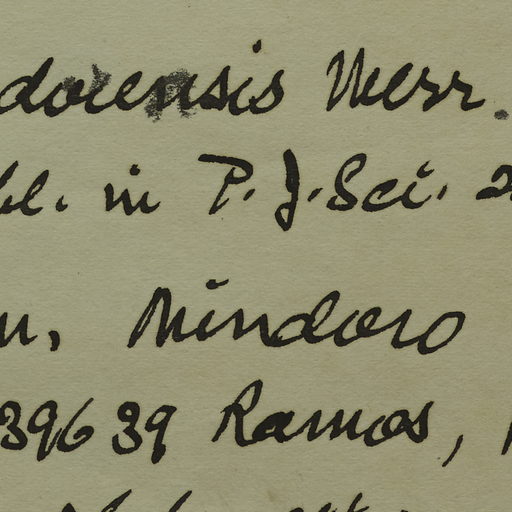 dorensis Merr.
bl. in P. J. Sci. 2
n, Mindoro
39639 Ramos,